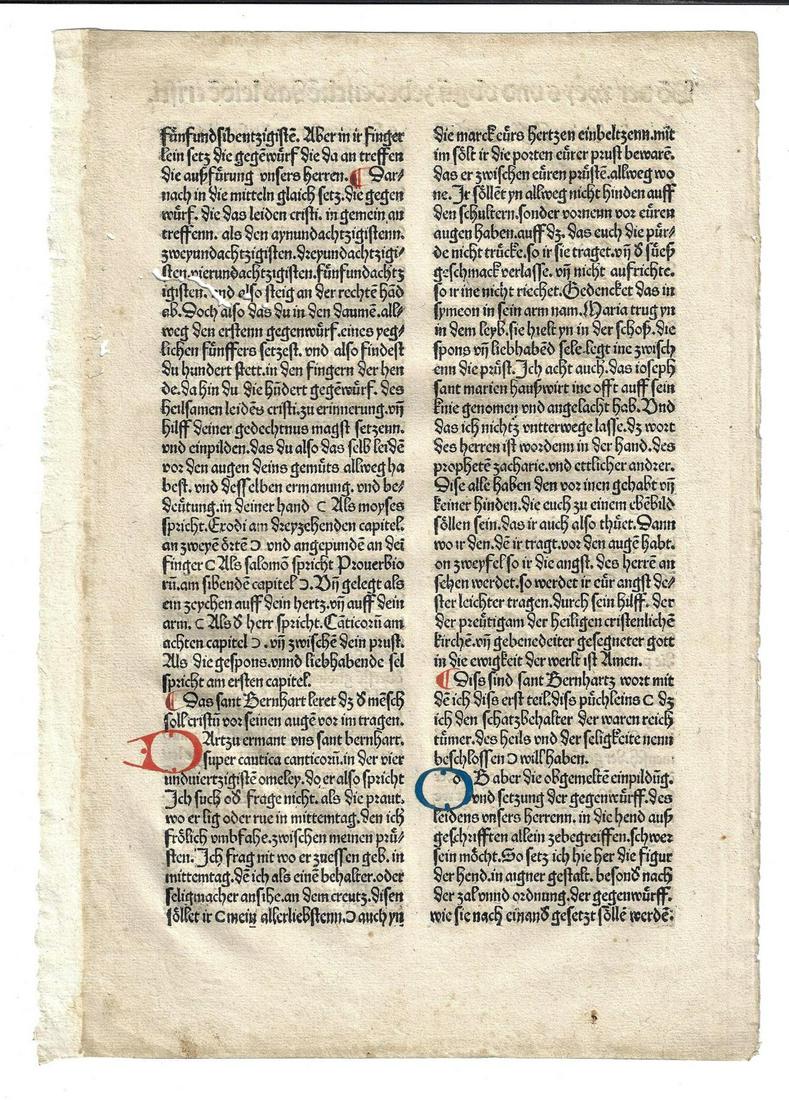 fünfundsibentzigistē. Aber in ir finger
lein setz die gegēwürf die da an treffen
die außfürung vnsers herren. ¶ Dar⸗
nach in die mitteln glaich setz. die gegen
würf. die das leiden cristi. in gemein an
treffenn. als den aynundachtzigistenn.
zweyundachtzigisten. dreyundachtzigi⸗
sten. vierundachtzigisten. fünfundachtz
igisten. vnd also steig an der rechtē hād
ab. Doch also das du in den daumē. all⸗
weg den erstenn gegenwürf. eines yeg⸗
lichen fünffers setzest. vnd also findest
du hundert stett. in den fingern der hen
de. da hin du die hūdert gegēwürf. des
heilsamen leidēs cristi. zu erinnerung. vn̄
hilff deiner gedechtnus magst setzenn.
vnd einpilden. das du also das selb leidē
vor den augen deins gemüts allweg ha
best. vnd desselben ermanung. vnd be⸗
deütung. in deiner hand ⊂ Als moyses
spricht. Erodi am dreyzehenden capitel.
an zweyē örtē ⊃ vnd angepundē an dei
finger ⊂ Als salomō spricht Prouerbio
rū. am sibendē capitel ⊃. Vn̄ gelegt als
ein zeychen auff dein hertz. vn̄ auff dein
arm. ⊂ Als d̄ herr spricht. Cāticorū am
achten capitel ⊃. vn̄ zwischē dein prust.
Als die gespons. vnnd liebhabende sel
spricht am ersten capitel.
¶ Das sant Bernhart leret dz d̄ mēsch
soll cristū vor seinen augē vor im tragen.
DArtzu ermant vns sant bernhart.
super cautica canticorū. in der vier
undviertzigistē omeley. do er also spricht
Ich such od̄ frage nicht. als die praut.
wo er lig oder rue in mittemtag. den ich
frölich vmbfahe. zwischen meinen prü⸗
sten. Ich frag mit wo er zuessen geb. in
mittemtag. dē ich als einē behalter. oder
seligmacher ansihe. an dem creutz. disen
söllet ir ⊂ mein̄ allerliebstenn. ⊃ auch yn
die marck eürs hertzen einbeltzenn. mit
im sölt ir die porten eürer prust bewarē.
das er zwischen eüren prüstē. allweg wo
ne. Ir söllēt yn allweg nicht hinden auff
den schultern. sonder vornenn vor eüren
augen haben. auff dz. das euch die pür⸗
de nicht trücke. so ir sie traget. vn̄ d̄ süeß
geschmack verlasse. vn̄ nicht aufrichte.
so ir ine nicht riechet. Gedencket das in
symeon in sein arm nam. Maria trug yn
in dem leyb. sie hielt yn in der schoß. die
spons vn̄ liebhabēd sele. legt ine zwisch
enn die prüst. Ich acht auch. das ioseph
sant marien haußwirt ine offt auff sein
knie genomen vnd angelacht hab. Vnd
das ich nichtz vntterwege lasse. dz wort
des herren ist wordenn in der hand. des
prophetē zacharie. vnd ettlicher andrer.
Dise alle haben den vor inen gehabt vn̄
keiner hinden. die euch zu einem ebēbild
söllen sein. das ir auch also thüet. Dann
wo ir den. dē ir tragt. vor den augē habt.
on zweyfel so ir die angst. des herrē an
sehen werdet. so werdet ir eür angst de⸗
ster leichter tragen. durch sein hilff. der
der preütigam der heiligen cristenlichē
kirchē. vn̄ gebenedeiter gesegneter gott
in die ewigkeit der werlt ist Amen.
¶ Diss sind sant Bernhartz wort mit
dē ich diss erst teil. diss püchleins ⊂ dz
ich den schatzbehalter der waren reich
tümer. des heils vnd der seligkeite nenn
beschlossen ⊃ will haben.
OB aber die obgemeltē einpildūg.
vnd setzung der gegenwürff. des
leidens vnsers herrenn. in die hend auß
geschrifften allein zebegreiffen. schwer
sein möcht. So setz ich hie her die figur
der hend. in aigner gestalt. besond̄ nach
der zal vnnd ordnung. der gegenwürff.
wie sie nach einand̄ gesetzt söllē werdē.